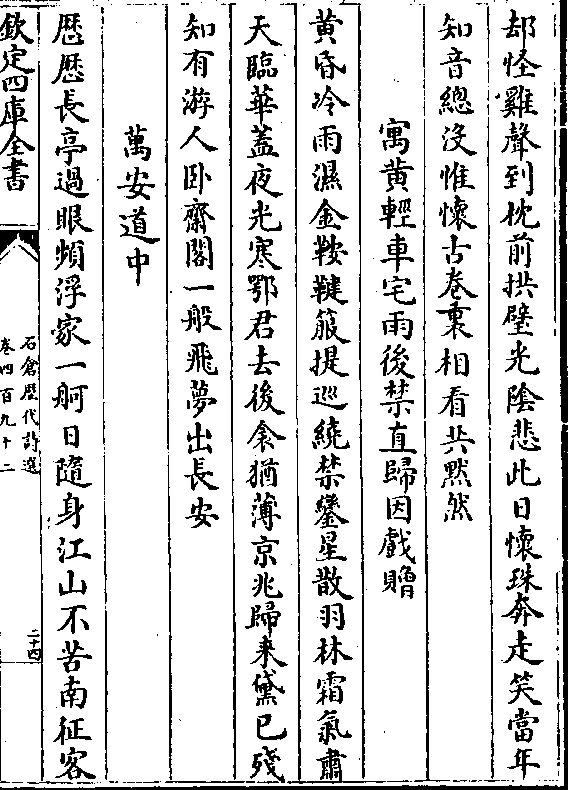 却怪雞聲到枕前拱璧光陰悲此日懷珠奔走笑當年
知音總沒惟懷古卷裏相看共黙然
寓黄輕車宅雨後禁直歸因戲贈
黄昏冷雨濕金鞍鞬箙提巡繞禁鑾星散羽林霜氣肅
天臨華蓋夜光寒鄂君去後衾猶薄京兆歸来黛已殘
知有游人卧齋閣一般飛夢出長安
萬安道中
歴歴長亭過眼頻浮家一舸日隨身江山不苦南征客
欽定四庫全書
石倉歴代詩選
卷四百九十二
二十四